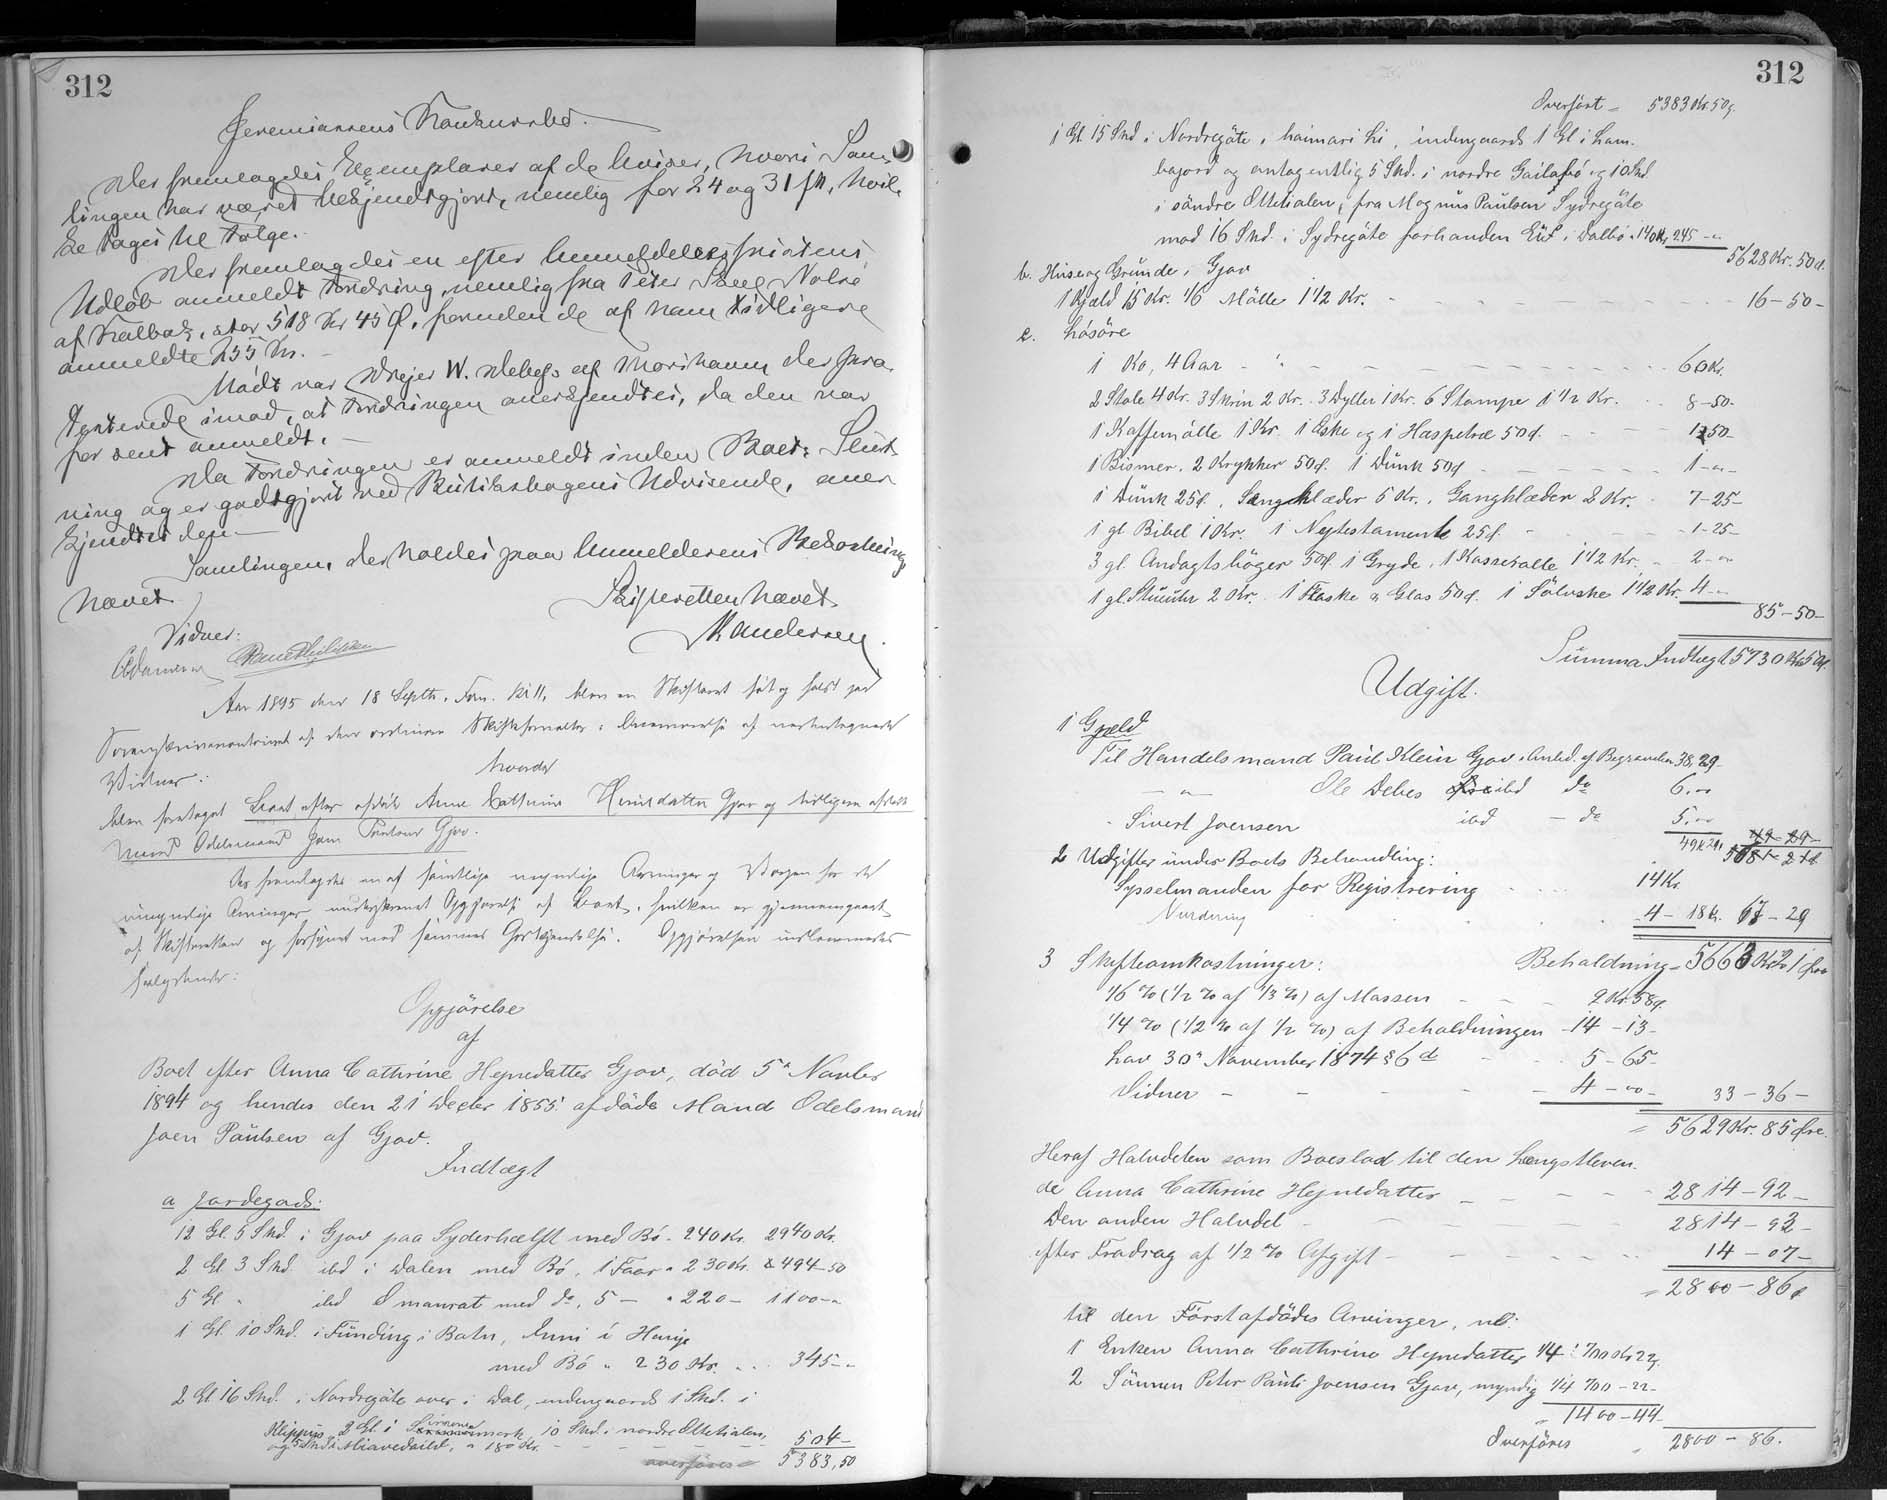 312
Jeremiassens Konkursbo.
Der fremlagdes Exemplarer af de Aviser, hvori Sam-
lingen har været bekjendtgjort, nemlig for 24 og 31 f.M., hvil-
ke toges til Følge.
Der fremlagdes en efter Anmeldelsesfristens
Udløb anmeldt Fordring, nemlig fra Peter Nolsø
af Kalbak, stor 518 Kr 45 Ø, foruden de af ham tidligere
anmeldte 255 Kr. -
Mødt var Drejer W. Debes af Thorshavn der pro-
testerede imod, at Fordringen anerkjendtes, da den var
for sent anmeldt. -
Da Fordringen er anmeldt inden Boets Slut-
ning og er godtgjort ved Butiksbogens Udvisende, aner-
kjendtes den -
Samlingen, der holdes paa Anmelderens Bekostning
hævet
Skifteretten hævet.
Vidner:
Andersen.
Aar 1895 den 18 Septb. Form. Kl 11, blev en Skifteret sat og holdt paa
Sorenskriverkontoret af den ordinære Skifteforvalter i Overværelse af undertegnede
Vidner:
hvorda
blev foretaget Boet efter afdøde Anne Cathrine Heinesdatter Gjov og tidligere afdøde
Mand Odelsmand Joen Poulsen Gjov.
Der fremlagdes en af samtlige myndige Arvinger og Værgen for de
umyndige Arvinger underskrevet Opgjørelse af Boet, hvilken er gjennemgaaet
af Skifteretten og forsynet med sammes Godkjendelse. Opgjørelsen indlemmedes
saalydende:
Opgjørelse
af
Boet efter Anna Cathrine Hejnedatter Gjov, död 5te Novber
1894 og hendes den 21 Decber 1855 afdöde Mand Odelsmand
Joen Paulsen af Gjov.
Indtægt
a Jordegods:
12 Gl. 5 Skd. i Gjov paa Syderhælft med Bö - 240 Kr. 2940 Kr.
2 Gl 3 Skd. ibd i Dalen med Bö, 1 Faar " 230 Kr. 494-50
5 Gl " ibd Smaurat med do, 5 - " 220 - 1100-"
1 Gl. 10 Skd. i Funding i Botn, Inni i Hauje
med Bö " 230 Kr. .. 345-"
2 Gl 16 Skd. i Nordregöte over i Dal, indengaards 1 Skd. i
Klippus 2 Gl. i mork, 10 Skd. i nordre Ottetialen,
og 5 Skd i " 180 Kr. - - - 504-
overføres 5383,50
312
Overfört - 5383 Kr. 50 ø.
1 Gl 15 Skd i Nordregöte, i haimari Li, indengaards 1 Gl i Ham-
bajord og antagentlig 5 Skd. i nordre og 10 Skd.
i söndre Ottetialen, fra Magnus Paulsen Sydregöte
mod 16 Skd. i Sydregöte forhanden i Dalbö " 140 Kr 245-"
5628 Kr. 50 ø.
b. Huse og Grunde i Gjov
1 Kjæld 15 Kr. 1/6 Mölle 1 1/2 Kr. - - - 16-50-
c. Lösöre
1 Ko, 4 Aar - - - 60 Kr.
2 Stole 4 Kr. 3 Skrin 2 Kr. 3 Dyller 1 Kr. 6 Stampe 1 1/2 Kr. 8-50-
1 Kaffemölle 1 Kr. 1 Æske og 1 Haspetræ 50 ø. - - 1-50-
1 Bismer, 2 Krykker 50 ø. 1 Dunk 50 ø - - - 1-"-
1 Dunk 25 ø, Sengklæder 5 Kr., Gangklæder 2 Kr. 7-25-
1 gl Bibel 1 Kr. 1 Nytestamente 25 ø. - - - 1-25-
3 gl. Andagtsböger 50 ø. 1 Gryde, 1 Kasserolle 1 1/2 Kr. - 2-"
1 gl. Stueuhr 2 Kr. 1 Flaske & Glas 50 ø. 1 Sölvske 1 1/2 Kr. 4-"
85-50-
Summa Indtægt 5730 Kr 50 ø.
Udgift.
1 Gjæld
Til Handelsmand Paul Klein Gjov i Anled. af Begravelsen 38,29-
- " - Ole Debes ibd do 6.00
- Sivert Joensen ibd - do 5.00
2 Udgifter under Boets Behandling:
Sysselmanden for Registrering ... 14 Kr.
Vurdering . . 4 - 18 Kr. 67-29
3 Skifteomkostninger: Behaldning - 5663 Kr 21 Øre
1/6 % (1/2 % af 1/3 %) af Massen - - 9 Kr. 58 ø.
1/4 % (1/2 % af 1/2 %) af Behaldningen - 14 - 13-
Lov 30te November 1874 § 6 d - - 5 - 65-
Vidner - - - 4 - 00 - 33-36-
= 5629 Kr. 85 Øre.
Heraf Halvdelen som Boeslod til den længstleven-
de Anna Cathrine Hejnedatter - - - 2814-92-
Den anden Halvdel - - - 2814-93-
efter Fradrag af 1/2 % Afgift - - - 14-07-
= 2800-86 ø
til den Förstafdödes Arvinger, nl:
1 Enken Anna Cathrine Hejnedatter 1/4: 700 Kr 22 ø.
2 Sönnen Peter Pauli Joensen Gjov, myndig 1/4 700-22-
" 1400-44-
Overföres " 2800-86.